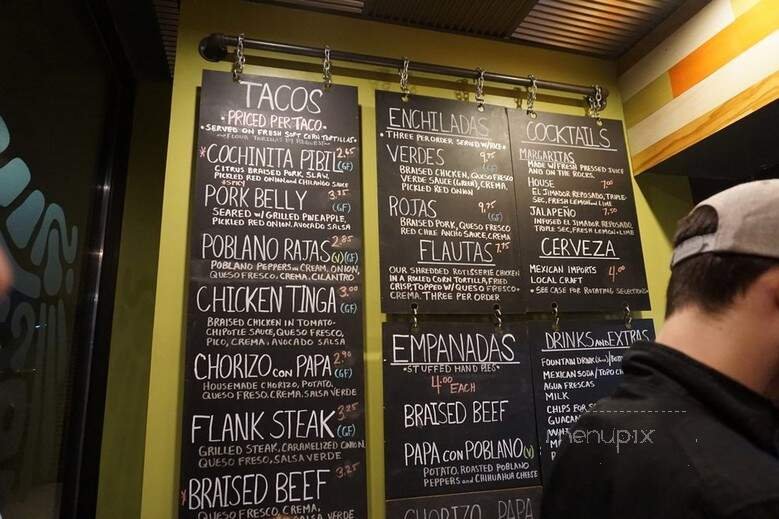 TACOS
• PRICED PER TACO •
• SERVED ON FRESH SOFT CORN TORTILLAS •
COCHINITA PIBIL 2.65 (GF)
CITRUS BRAISED PORK, SLAW,
PICKLED RED ONION AND CHILANGO SAUCE
*SPICY
PORK BELLY 3.25 (GF)
SEARED W/ GRILLED PINEAPPLE,
PICKLED RED ONION, AVOCADO SALSA
POBLANO RAJAS 2.85 (V)(GF)
POBLANO PEPPERS IN CREAM, ONION,
QUESO FRESCO, CREMA, CILANTRO
CHICKEN TINGA 3.00 (GF)
BRAISED CHICKEN IN TOMATO-
CHIPOTLE SAUCE, QUESO FRESCO,
PICO, CREMA & AVOCADO SALSA
CHORIZO CON PAPA 2.90 (GF)
HOUSEMADE CHORIZO, POTATO,
QUESO FRESO, CREMA, SALSA VERDE
FLANK STEAK 3.25 (GF)
GRILLED STEAK, CARAMELIZED ONION,
QUESO FRESCO, SALSA VERDE
*BRAISED BEEF 3.25
QUESO FRESCO, CREMA,
SALSA VERDE
ENCHILADAS
• THREE PER ORDER SERVED W/ RICE •
VERDES 9.75 (GF)
BRAISED CHICKEN, QUESO FRESCO
VERDE SAUCE (GREEN), CREMA,
PICKLED RED ONION
ROJAS 9.75 (GF)
BRAISED PORK, QUESO FRESCO
RED CHILE ANCHO SAUCE, CREMA
FLAUTAS 7.75
OUR SHREDDED ROTISSERIE CHICKEN
IN A ROLLED CORN TORTILLA, FRIED
CRISP, TOPPED W/ QUESO FRESCO
CREMA. THREE PER ORDER
EMPANADAS
• STUFFED HAND PIES •
4.00 EACH
BRAISED BEEF
PAPA CON POBLANO (V)
POTATO, ROASTED POBLANO
PEPPERS AND CHIHUAHUA CHEESE
CHORIZO PAPA
COCKTAILS
MARGARITAS
MADE W/ FRESH PRESSED JUICE
AND ON THE ROCKS.
HOUSE 7.00
EL JIMADOR REPOSADO, TRIPLE
SEC, FRESH LEMON AND LIME
JALAPEÑO 7.50
INFUSED EL JIMADOR REPOSADO,
TRIPLE SEC, FRESH LEMON & LIME
CERVEZA
MEXICAN IMPORTS 4.00
LOCAL CRAFT
• SEE CASE FOR ROTATING SELECTION
DRINKS AND EXTRAS
FOUNTAIN DRINK
MEXICAN SODA/TOPO
AGUA FRESCAS
MILK
CHIPS
menupix